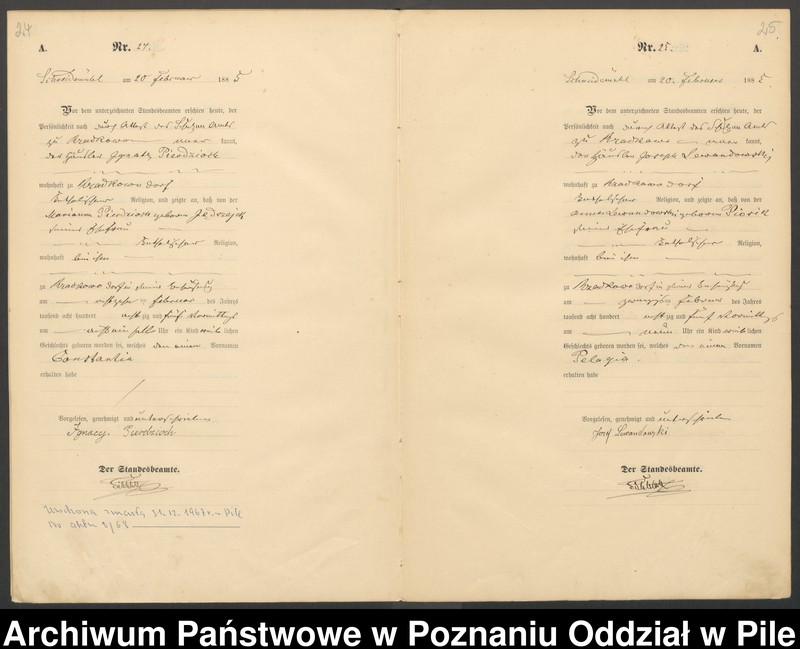 24
A.
Nr. 24.
Schneidemühl am 20 Februar 1885
Vor dem unterzeichneten Standesbeamten erschien heute, der
Persönlichkeit nach durch Attest des Schulzen Amts
zu Kradkowo kannt,
der Häusler Ignatz Pierdzioch
wohnhaft zu Kradkowo Dorf
katholischer Religion, und zeigte an, daß von der
Marianna Pierdzioch geborene
seiner Ehefrau
katholischer Religion,
wohnhaft bei ihm
zu Kradkowo Dorf in seiner Behausung
am Februar des Jahrs
tausend acht hundert achtzig und fünf Vormittags
am Uhr ein Kind weiblichen
Geschlechts geboren worden sei, welches den einen Vornamen
Constantia
erhalten habe
Vorgelesen, genehmigt und unterschrieben
Ignacy Pierdzioch
Der Standesbeamte.
zmarła 31.12.1967 r. - Piła
Nr aktu 2/68
25
Nr. 25.
A.
Schneidemühl am 20. Februar 1885
Vor dem unterzeichneten Standesbeamten erschien heute, der
Persönlichkeit nach durch Attest des Schulzen Amts
zu Kradkowo kannt,
der Häusler Joseph Lewandowski
wohnhaft zu Kradkowo Dorf
katholischer Religion, und zeigte an, daß von der
Lewandowski geborene
seiner Ehefrau
katholischer Religion,
wohnhaft bei ihm
zu Kradkowo Dorf in seiner Behausung
am Februar des Jahres
tausend acht hundert achtzig und fünf Vormittags
am neun Uhr ein Kind weiblichen
Geschlechts geboren worden sei, welches den einen Vornamen
Pelagia
erhalten habe
Vorgelesen, genehmigt und unterschrieben
Josef Lewandowski
Der Standesbeamte.
Archiwum Państwowe w Poznaniu Oddział w Pile